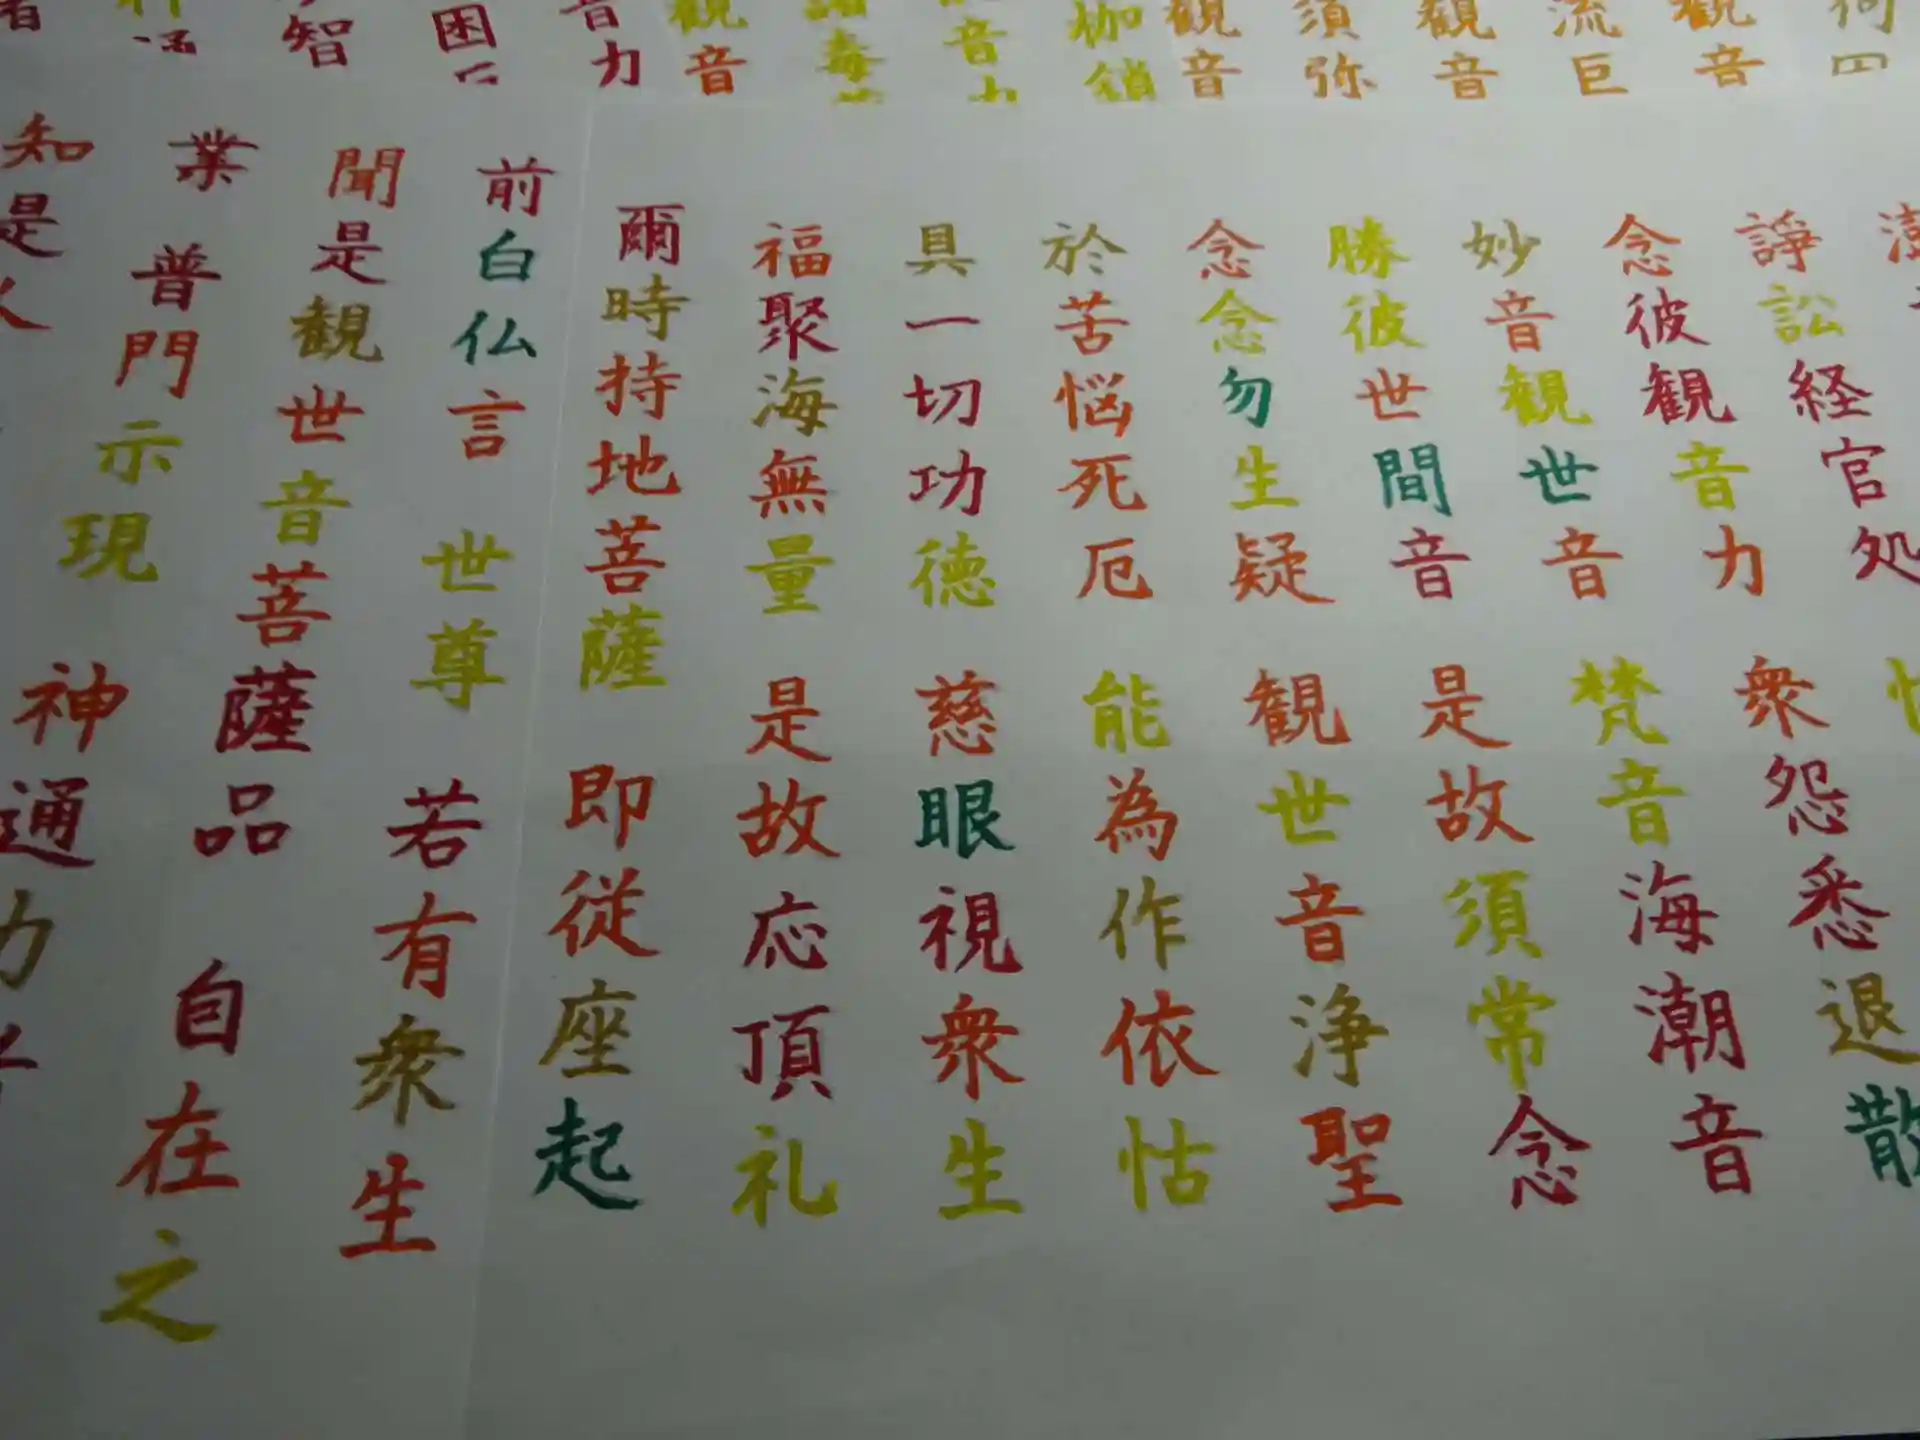 観音
流巨
観音
須弥
観音
枷鎖
音力
諸毒
観音
音力
困
智
諍訟経官処
念彼観音力 衆怨悉退散
妙音観世音 梵音海潮音
勝彼世間音 是故須常念
念念勿生疑 観世音浄聖
於苦悩死厄 能為作依怙
具一切功徳 慈眼視衆生
福聚海無量 是故応頂礼
爾時持地菩薩 即従座起
前白仏言 世尊 若有衆生
聞是観世音菩薩品 自在之
業 普門示現 神通力
知是人